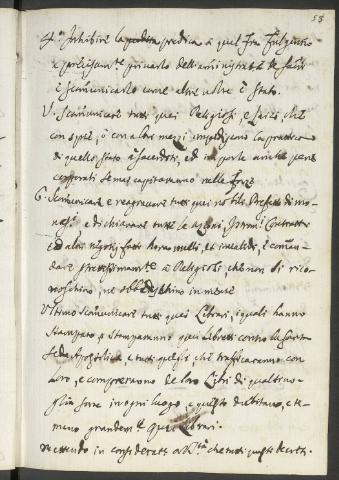 58
4.° Inhibire la predica a quel Fra Fulgentio
e poi
è scomunicarlo come altre volte è stato.
V. Scomunicare tutti quei Religiosi, e laici che
con spie, ò con altri mezzi impediscono la prattica
di quello stato à sacerdoti, ed imporle anche pene
corporali se mai capitaranno nelle forze
6. Scomunicare e reaggravare tutti quei nobili Prefetti di mo-
nasi e dichiarare tutte le azioni, Contratti
ed altri negotij fatti hora nulli, et invalidi, è coman-
dare strettissimamte à Religiosi che non li rico-
noschino, ne obbedischino in niente
Ultimo scomunicare tutti quei Librari, i quali hanno
stampato, o stamparanno quei Libretti contro la Santa
Sede Apostolica e tutti quelli che trafficaranno con
loro, e compreranno da loro Libri di qualsivo-
glia sorte in ogni luogo, e questo dubitano, e te-
mono grandemte quei Librari.
mettendo in consideratne à V. Stà che tutti questi decreti